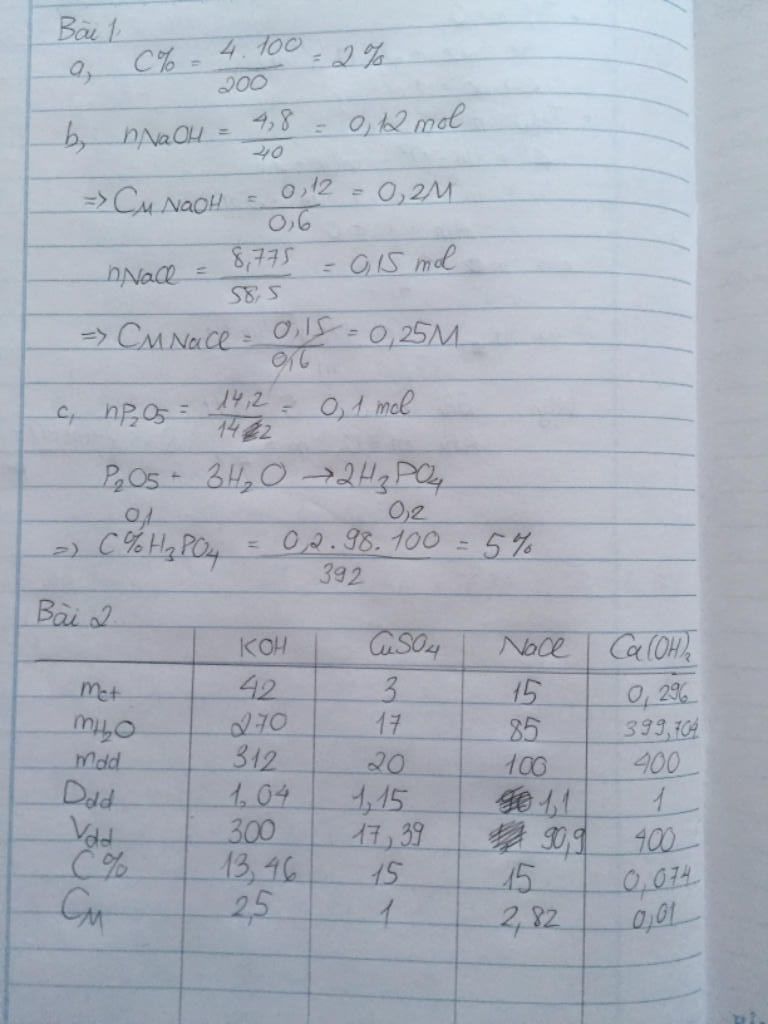 Bài 1
a, C% = 4.100/200 = 2%
b, nNaOH = 4,8/40 = 0,12 mol
=> CM NaOH = 0,12/0,6 = 0,2M
nNaCl = 8,775/58,5 = 0,15 mol
=> CM NaCl = 0,15/0,6 = 0,25M
c, nP2O5 = 14,2/142 = 0,1 mol
P2O5 + 3H2O → 2H3PO4
0,1 0,2
=> C% H3PO4 = 0,2.98.100/392 = 5%
Bài 2
KOH CuSO4 NaCl Ca(OH)2
mct 42 3 15 0,296
mH2O 270 17 85 399,704
mdd 312 20 100 400
Ddd 1,04 1,15 1,1 1
Vdd 300 17,39 90,9 400
C% 13,46 15 15 0,074
CM 2,5 1 2,82 0,01